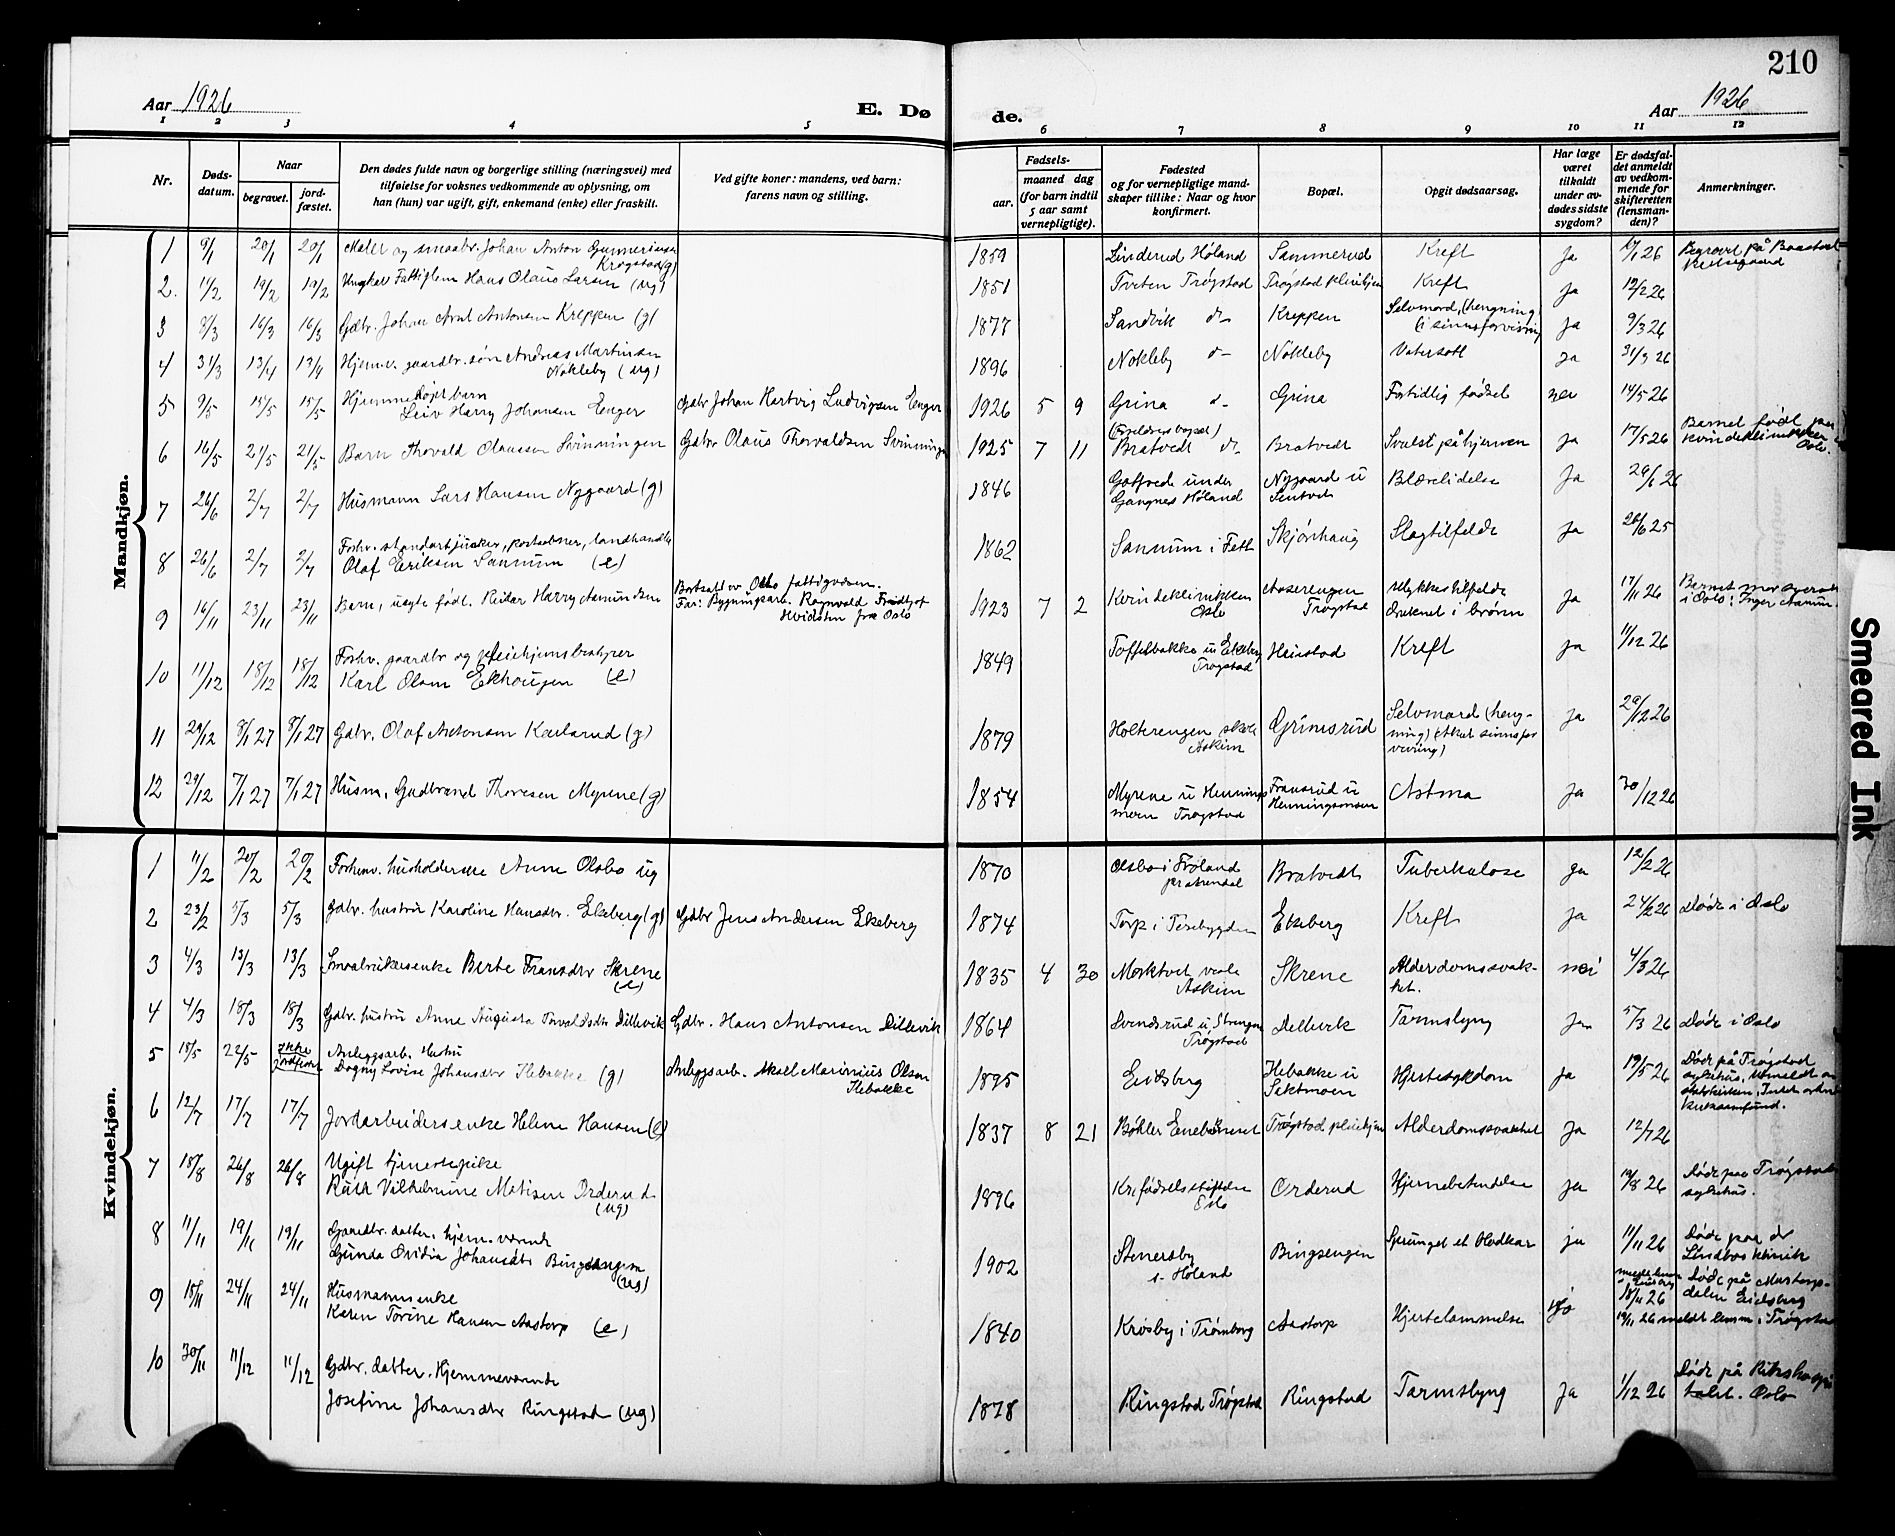 210
Aar 1926
E. Dø
de.
Aar 1926
1 2 3 4 5 6 7 8 9 10 11 12
Nr.
Døds-
datum.
Naar
begravet.
jord-
fæstet.
Den dødes fulde navn og borgerlige stilling (næringsvei) med
tilføielse for voksnes vedkommende av oplysning, om
han (hun) var ugift, gift, enkemand (enke) eller fraskilt.
Ved gifte koner: mandens, ved barn:
farens navn og stilling.
Fødsels-
aar.
maaned dag
(for barn indtil
5 aar samt
vernepligtige).
Fødested
og for vernepligtige mand-
skaper tillike: Naar og hvor
konfirmert.
Bopæl.
Opgit dødsaarsag.
Har læge
været
tilkaldt
under av-
dødes sidste
sygdom?
Er dødsfal-
det anmeldt
av vedkom-
mende for
skifteretten
(lensman-
den)?
Anmerkninger.
Mandkjøn.
1 9/1 20/1 20/1 Maler og smaabr. Johan Anton Gunneriusen
Krogstad (g)
1859 Linderud Høland Sammerud Kreft Ja 11/1 26 Begravet på Baastad
Kirkegaard
2. 11/2 19/2 19/2 Ungkar Fattiglem Hans Olaus Larsen (ug)
1851 Tveten Trøgstad Trøgstad pleiehjem Kreft Ja 12/2 26
3 8/3 16/3 16/3 Gdbr. Johan Arnt Antonsen Kreppen (g)
1877 Sandvik do Kreppen Selvmord, (hengning)
(i sinnsforvirring) Ja 9/3 26
4 31/3 13/4 13/4 Hjemv. gaardbr. søn Andreas Martinsen
Nokleby (ug)
1896 Nokleby do Nokleby Vatersott Ja 31/3 26
5 9/5 15/5 15/5 Hjemmedøpt barn
Leiv Harry Johansen Enger
Gdbr Johan Hartvig Ludvigsen Enger
1926 5 9 Grina do Grina Fortidlig fødsel nei 14/5 26
6 16/5 21/5 21/5 Barn Thorvald Olaussen Svinningen
Gdbr Olaus Thorvaldsen Svinningen
1925 7 11 (Foreldres bopæl)
Bratvedt do Bratvedt Svulst på hjernen ja 17/5 26 Barnet født paa
kvindeklinikken
Oslo.
7 26/6 2/7 2/7 Husmann Lars Hansen Nygaard (g)
1846 under
Gangnes Høland Nygaard u Blærelidelse Ja 29/6 26
8 26/6 2/7 2/7 Forhv. standartjunker, postaabner, landhandler
Olaf Eriksen Sannum (e)
1862 Sannum i Fett Skjønhaug Slagtilfelde ja 26/6 25
9 16/11 23/11 23/11 Barn, uegte født. Reidar Harry Aamundsen
Bortsatt av Oslo fattigvæsen.
Far: Bygningsarb. Ragnvald Fredlyst
Hvidsten fra Oslo
1923 7 2 Kvindeklinikken
Oslo Aaserengen
Trøgstad Ulykkestilfelde
druknet i brønn Ja 17/11 26 Barnets mor
i Oslo: Inger
10 11/12 18/12 18/12 Forhv. gaardbr og pleiehjemsbestyrer
Karl Olsen Ekhougen (e)
1849 Toffelbakke u Ekeberg
Trøgstad Heistad Kreft ja 11/12 26
11 29/12 8/1 27 8/1 27 Gdbr. Olaf Antonsen Karlsrud (g)
1879 Holterengen skole
Askim Grimsrud Selvmord (heng-
ning) (Akut sinnsfor
virring) ja 29/12 26
12 29/12 7/1 27 7/1 27 Husm. Gudbrand Thoresen Myrene (g)
1854 Myrene u Hennings
moen Trøgstad Fransrud u
Henningsmoen Astma Ja 30/12 26
Kvindekjøn.
1 11/2 20/2 20/2 Forhenv. husholderske Anne Olsbo ug
1870 Olsbo i Froland
pr Arendal Bratvedt Tuberkulose ja 12/2 26
2 23/2 5/3 5/3 Gdbr. hustru Karoline Hansdtr. Ekeberg (g)
Gdbr Jens Andersen Ekeberg
1874 Torp i Ekeberg Kreft Ja 24/2 26 Døde i Oslo
3 4/3 13/3 13/3 Smaabrukerenke Berte Fransdtr Skrene
(e)
1835 4 30 Morktvet vestre
Askim Skrene Alderdomssvak-
het. nei 4/3 26
4 4/3 18/3 18/3 Gdbr. hustru Anne Augusta Torvaldsdtr Dillevik
Gdbr. Hans Antonsen Dillevik
1864 Svendsrud u Strengen
Trøgstad Dellevik Tarmslyng Ja 5/3 26 Døde i Oslo
5 18/5 22/5 ikke
jordfestet Anleggsarb. Hustru
Dagny Lovise Johansdtr Ilebakke (g)
Anlegsarb. Aksel Marinius Olsen
Ilebakke
1895 Eidsberg Ilebakke u
Sektmoen Hjertesykdom Ja 19/5 26 Døde på Trøgstad
sykehus. Utmeldt av
statskirken,
kirkesamfund.
6 12/7 17/7 17/7 Jordarbeidersenke Helene Hansen (e)
1837 8 21 Bøhler Enebakk Trøgstad pleiehjem Alderdomssvakhet Ja 12/7 26
7 18/8 26/8 26/8 Ugift tjenestepike
Ruth Vilhelmine Matisen Orderud
(ug)
1896 Kr. fødselsstiftelse
Oslo Orderud Hjernebetendelse ja 19/8 26 Døde paa Trøgstad
sykehus.
8 11/11 19/11 19/11 Gaardbr. datter. hjem. værende
Gunda Ovidia Johansdtr Bingsengen
(ug)
1902 Stenersby
i Høland Bingsengen Sprunget et Blodkar ja 11/11 26 Døde paa dr
Lindboes klinik
9 18/11 24/11 24/11 Husmannsenke
Karen Torine Hansen Aastorp (e)
1840 Krosby i Trømborg Aastorp Hjertelammelse Ja 18/11 26 Døde på Mustorp-
dalen Eidsberg
19/11 26 meldt lensm. i Trøgstad
10 30/11 11/12 11/12 Gdbr. datter. Hjemmeværende
Josefine Johansdtr Ringstad (ug)
1878 Ringstad Trøgstad Ringstad Tarmslyng Ja 1/12 26 Døde på Rikshospi
talet. Oslo
Smeared Ink